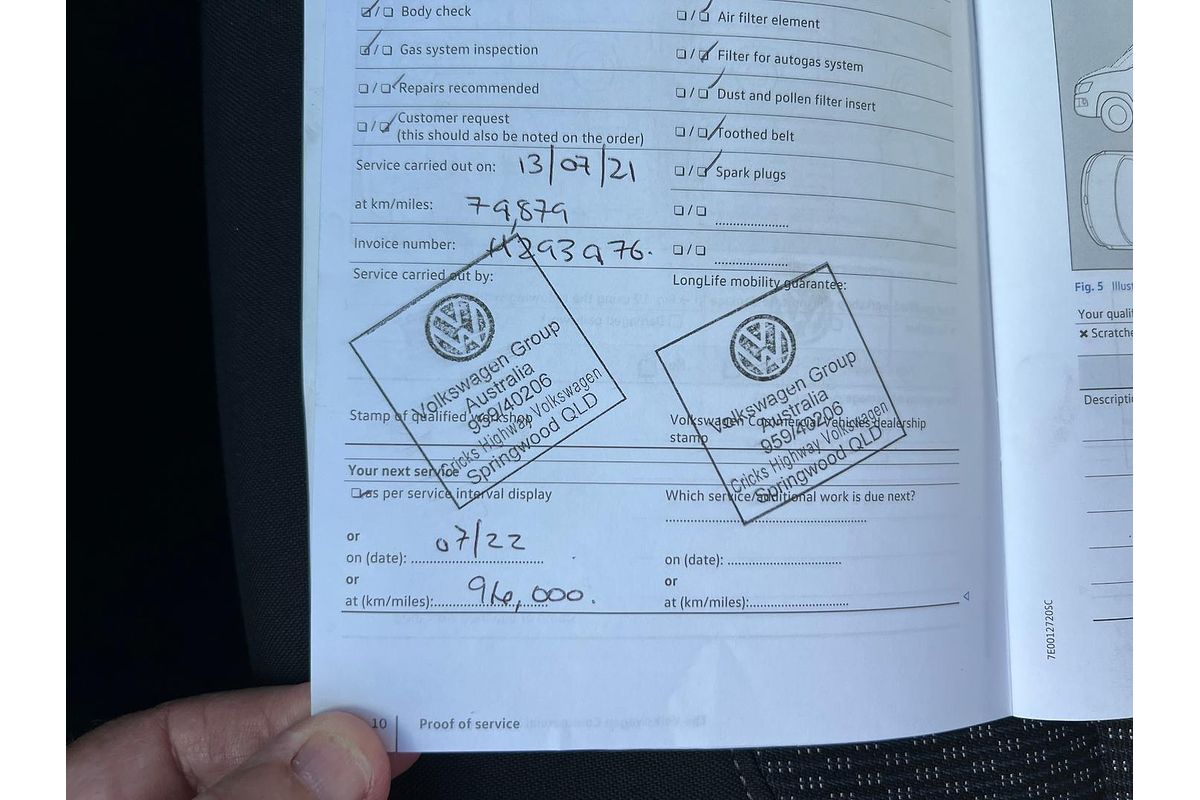 Body check
Gas system inspection
Repairs recommended
Customer request
(this should also be noted on the order)
Service carried out on: 13/07/21
at km/miles: 79,879
Invoice number: 11293976.
Service carried out by:
Air filter element
Filter for autogas system
Dust and pollen filter insert
Toothed belt
Spark plugs
LongLife mobility guarantee:
Volkswagen Group
Australia
959/40206
Cricks Highway Volkswagen
Springwood QLD
Stamp of qualified workshop
Volkswagen Group
Australia
959/40206
Cricks Highway Volkswagen
Springwood QLD
Volkswagen Commercial Vehicles dealership
stamp
Your next service
as per service interval display
or
on (date): 07/22
or
at (km/miles): 96,000.
Which service/additional work is due next?
on (date):
or
at (km/miles):
10 Proof of service
Fig. 5
Your
Scratche
7E0012720SC